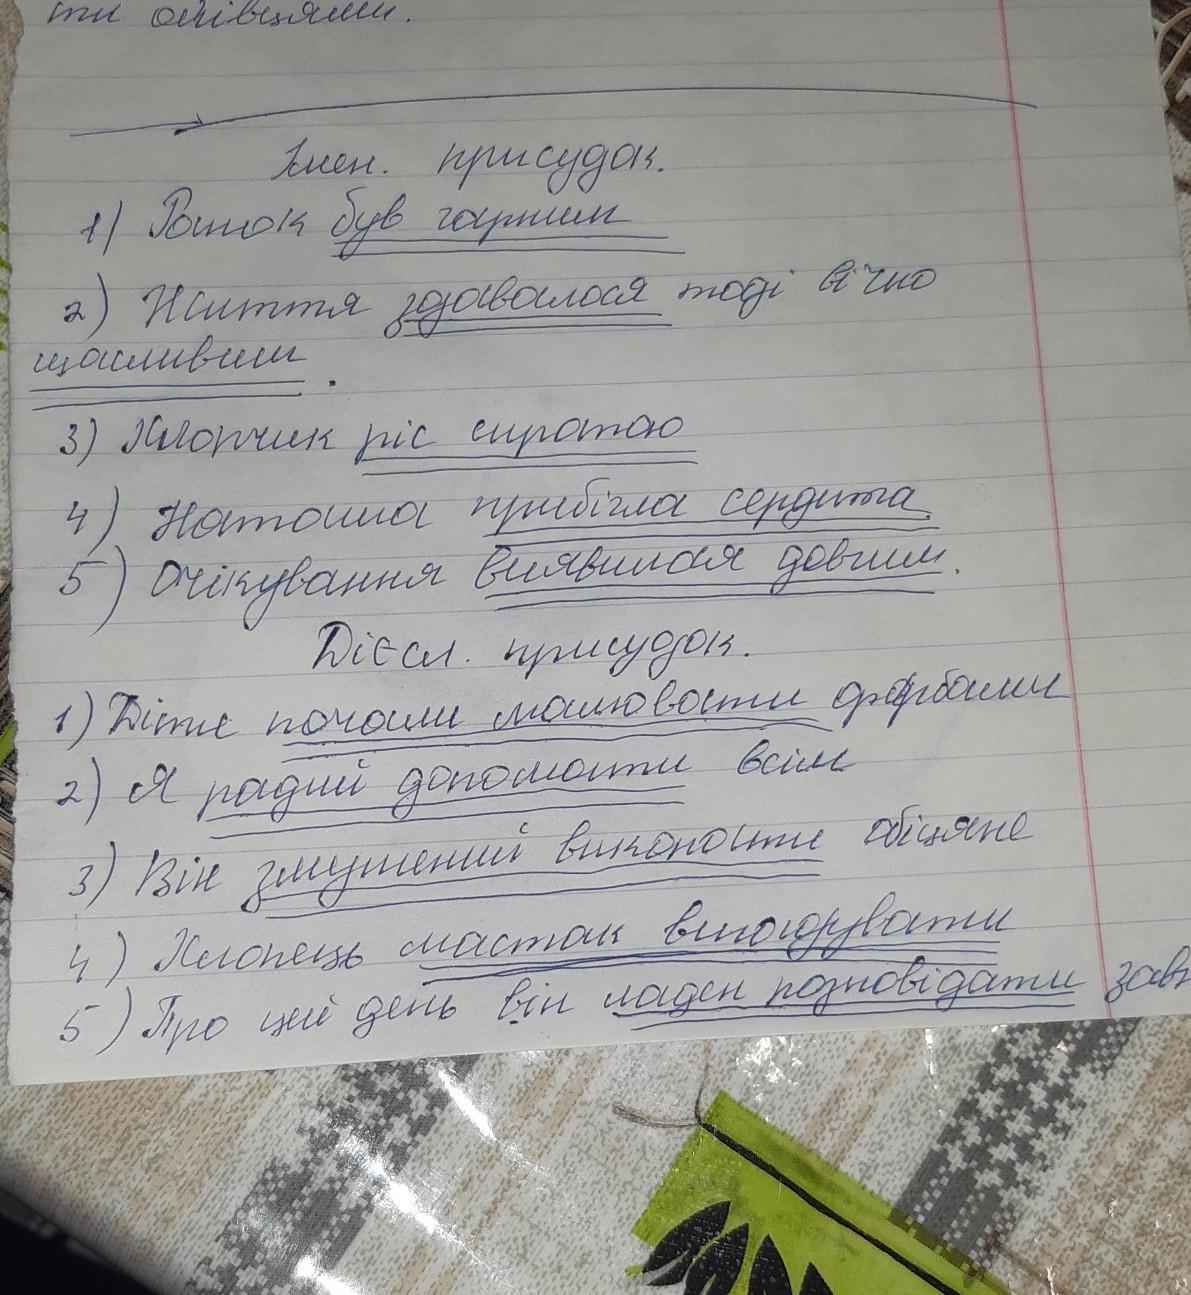 ти олівцями.
Імен. присудок.
1) Ранок був гарним
2) Життя здавалося тоді вічно
щасливим.
3) Хлопчик ріс сиротою
4) Наташа прибігла сердита.
5) Очікування виявилася довгим.
Дієсл. присудок.
1) Діти почали малювати фарбами
2) Я радий допомогти всім
3) Він змушений виконати обіцяне
4) Хлопець мастак вигадувати
5) Про цей день він ладен розповідати